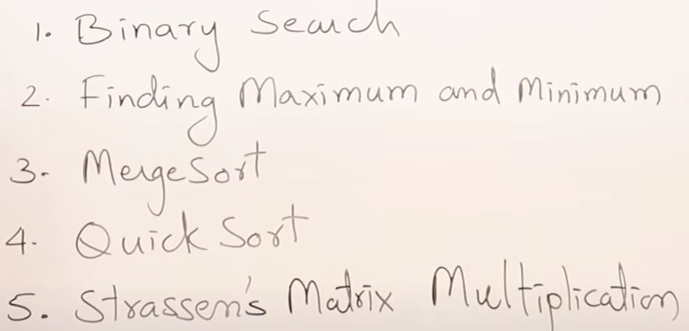 1. Binary Search
2. Finding Maximum and Minimum
3. MergeSort
4. Quick Sort
5. Strassen's Matrix Multiplication